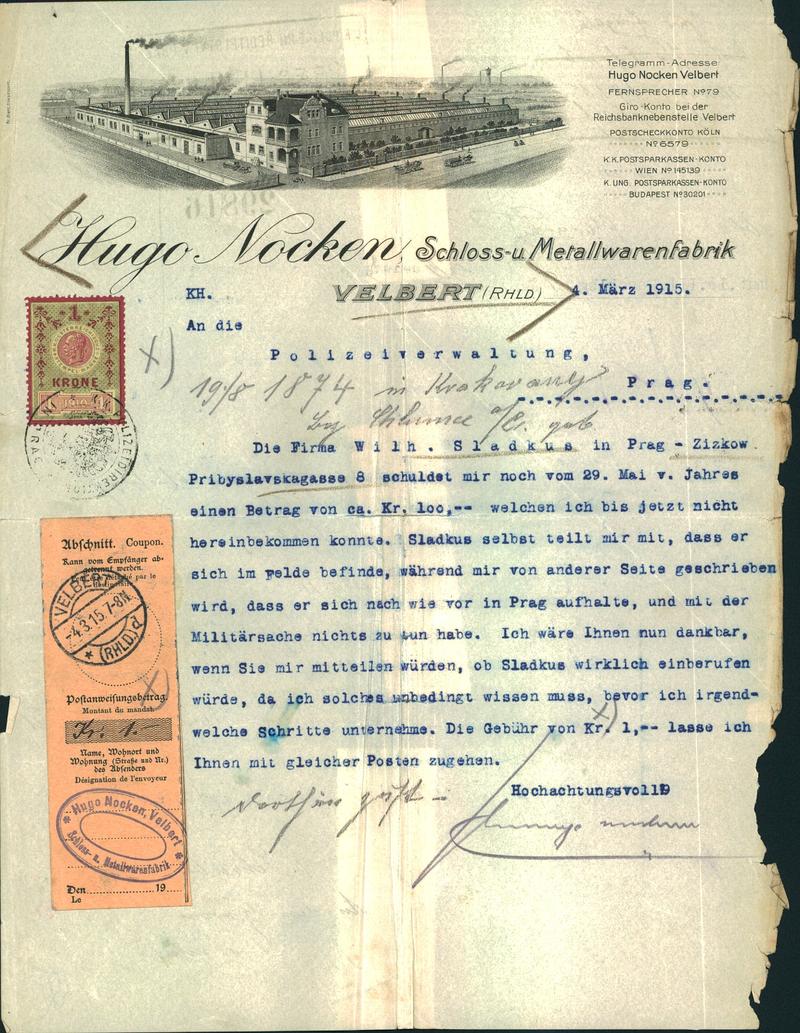 Telegramm-Adresse
Hugo Nocken Velbert
FERNSPRECHER No 79
Giro-Konto bei der
Reichsbanknebenstelle Velbert
POSTSCHECKKONTO KÖLN
No 6579
K.K. POSTSPARKASSEN-KONTO
WIEN No 145139
K. UNG. POSTSPARKASSEN-KONTO
BUDAPEST No 30201
Hugo Nocken, Schloss-u. Metallwarenfabrik
VELBERT (RHLD)
KH.
4. März 1915.
An die
Polizeiverwaltung,
Prag.
19/8 1874 in
1
KRONE
1910
PRAG
Die Firma Wilh. Sladkus in Prag - Zizkow
Pribyslavskagasse 8 schuldet mir noch vom 29. Mai v. Jahres
einen Betrag von ca. Kr. 100,-- welchen ich bis jetzt nicht
hereinbekommen konnte. Sladkus selbst teilt mir mit, dass er
sich im Felde befinde, während mir von anderer Seite geschrieben
wird, dass er sich nach wie vor in Prag aufhalte, und mit der
Militärsache nichts zu tun habe. Ich wäre Ihnen nun dankbar,
wenn Sie mir mitteilen würden, ob Sladkus wirklich einberufen
würde, da ich solches unbedingt wissen muss, bevor ich irgend-
welche Schritte unternehme. Die Gebühr von Kr. 1,-- lasse ich
Ihnen mit gleicher Posten zugehen.
Hochachtungsvoll
Abschnitt. Coupon.
Kann vom Empfänger ab-
getrennt werden.
VELBERT
-4.3.15.7-8N
(RHLD.)
Postanweisungsbetrag
Montant du mandat
Kr. 1.-
Name, Wohnort und
Wohnung (Straße und Nr.)
des Absenders
Désignation de l'envoyeur
Hugo Nocken, Velbert
Schloss- u. Metallwarenfabrik
Den 19
Le